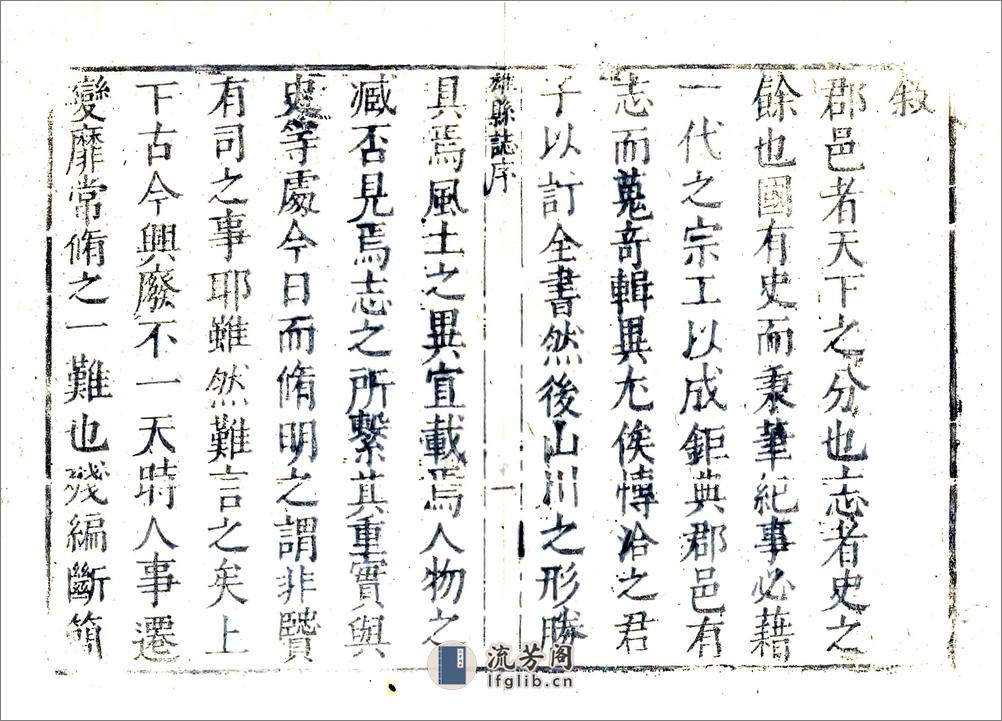 敘
郡邑者天下之分也志者史之
餘也國有史而秉筆紀事必藉
一代之宗工以成鉅典郡邑有
志而蒐奇輯異尤俟愽洽之君
子以訂全書然後山川之形勝
雄縣誌序
一
具焉風土之異宜載焉人物之
臧否見焉志之所繫其重實與
史等處今日而脩明之謂非賢
有司之事耶雖然難言之矣上
下古今興廢不一天時人事遷
變靡常脩之一難也殘編斷簡
流芳阁
lfglib.cn